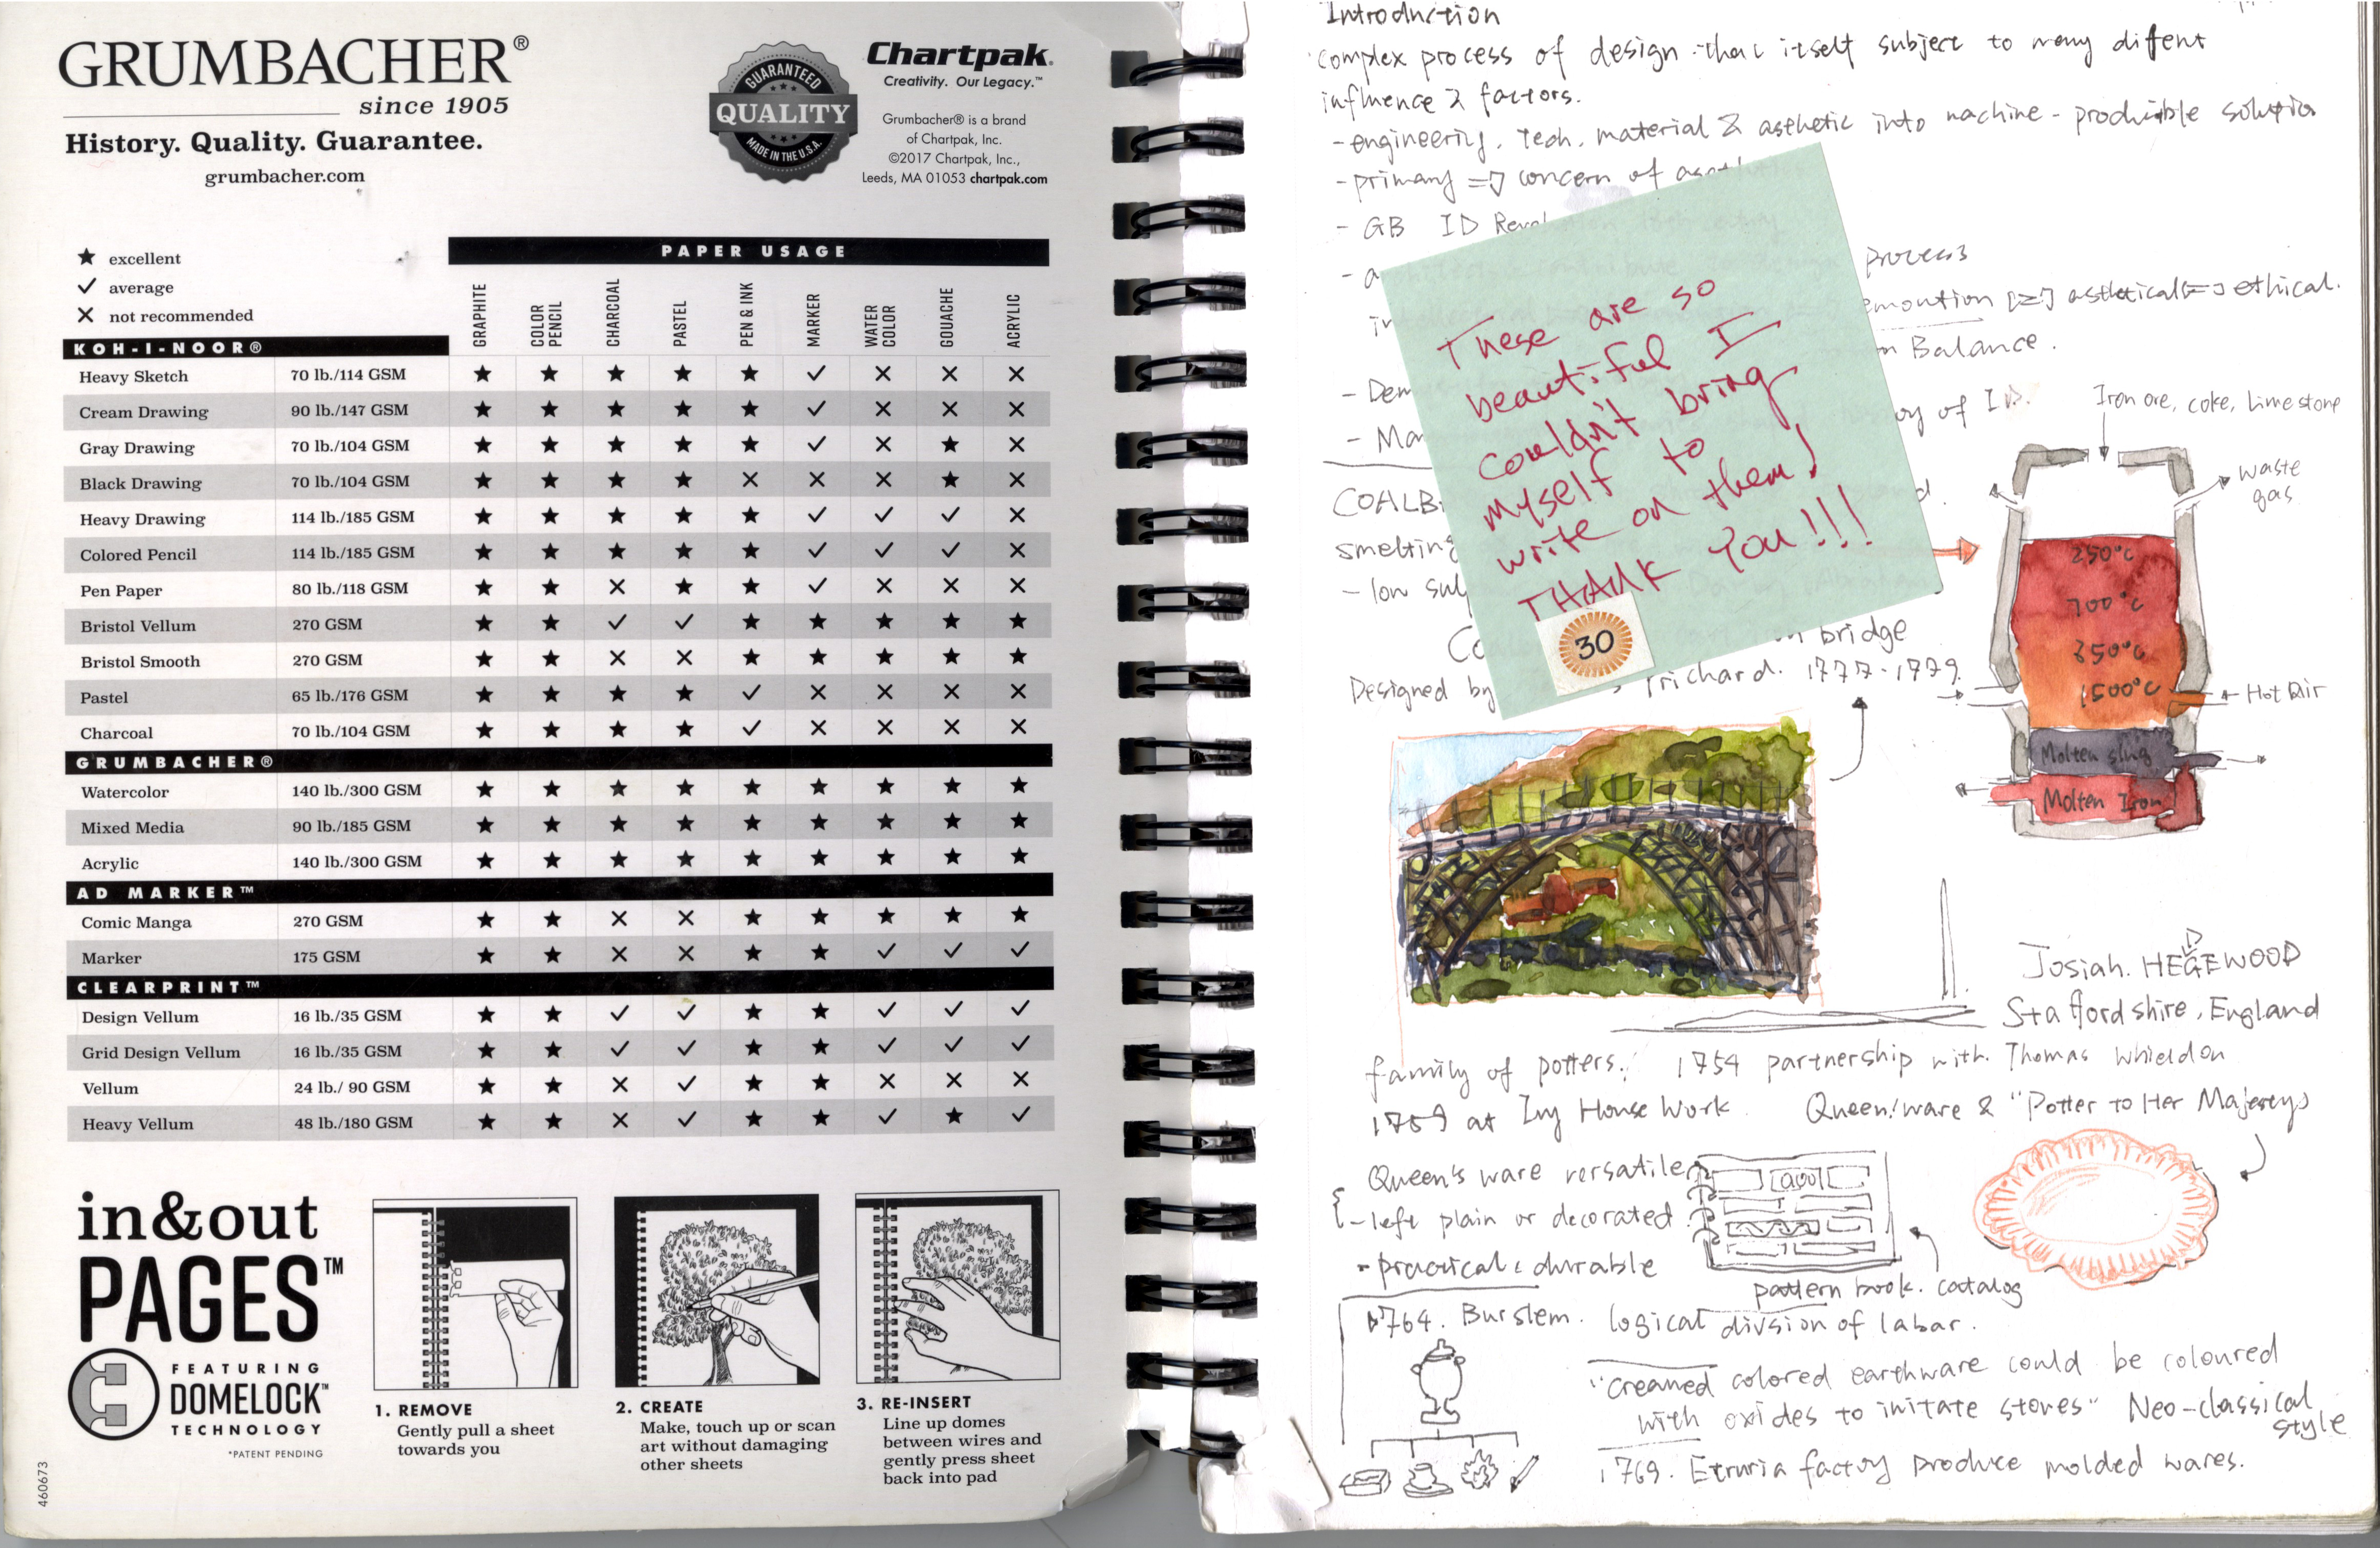 GRUMBACHER®
since 1905
History. Quality. Guarantee.
grumbacher.com
GUARANTEED
QUALITY
MADE IN THE U.S.A.
Chartpak®
Creativity. Our Legacy.™
Grumbacher® is a brand
of Chartpak, Inc.
©2017 Chartpak, Inc.,
Leeds, MA 01053 chartpak.com
★ excellent
✓ average
✕ not recommended
PAPER USAGE
GRAPHITE COLOR PENCIL CHARCOAL PASTEL PEN & INK MARKER WATER COLOR GOUACHE ACRYLIC
KOH-I-NOOR®
Heavy Sketch 70 lb./114 GSM ★ ★ ★ ★ ★ ✓ ✕ ✕ ✕
Cream Drawing 90 lb./147 GSM ★ ★ ★ ★ ★ ✓ ✕ ✕ ✕
Gray Drawing 70 lb./104 GSM ★ ★ ★ ★ ★ ✓ ✕ ★ ✕
Black Drawing 70 lb./104 GSM ★ ★ ★ ★ ✕ ✕ ✕ ★ ✕
Heavy Drawing 114 lb./185 GSM ★ ★ ★ ★ ★ ✓ ✓ ✓ ✕
Colored Pencil 114 lb./185 GSM ★ ★ ★ ★ ★ ✓ ✓ ✓ ✕
Pen Paper 80 lb./118 GSM ★ ★ ✕ ★ ★ ✓ ✕ ✕ ✕
Bristol Vellum 270 GSM ★ ★ ✓ ✓ ★ ★ ★ ★ ★
Bristol Smooth 270 GSM ★ ★ ✕ ✕ ★ ★ ★ ★ ★
Pastel 65 lb./176 GSM ★ ★ ★ ★ ✓ ✕ ✕ ✕ ✕
Charcoal 70 lb./104 GSM ★ ★ ★ ★ ✓ ✕ ✕ ✕ ✕
GRUMBACHER®
Watercolor 140 lb./300 GSM ★ ★ ★ ★ ★ ★ ★ ★ ★
Mixed Media 90 lb./185 GSM ★ ★ ★ ★ ★ ★ ★ ★ ★
Acrylic 140 lb./300 GSM ★ ★ ★ ★ ★ ★ ★ ★ ★
AD MARKER™
Comic Manga 270 GSM ★ ★ ✕ ✕ ★ ★ ★ ★ ★
Marker 175 GSM ★ ★ ✕ ✕ ★ ★ ✓ ✓ ✓
CLEARPRINT™
Design Vellum 16 lb./35 GSM ★ ★ ✓ ✓ ★ ★ ✓ ✓ ✓
Grid Design Vellum 16 lb./35 GSM ★ ★ ✓ ✓ ★ ★ ✓ ✓ ✓
Vellum 24 lb./ 90 GSM ★ ★ ✕ ✓ ★ ★ ✕ ✕ ✕
Heavy Vellum 48 lb./180 GSM ★ ★ ✕ ✓ ★ ★ ✓ ★ ✓
in&out
PAGES™
FEATURING
DOMELOCK™
TECHNOLOGY
*PATENT PENDING
460673
1. REMOVE
Gently pull a sheet
towards you
2. CREATE
Make, touch up or scan
art without damaging
other sheets
3. RE-INSERT
Line up domes
between wires and
gently press sheet
back into pad
Introduction
complex process of design that itself subject to many difent
influence & factors.
- engineering, Tech, material & asthetic into machine - producible solution
- primary => concern of
- GB ID
process
asthetical ethical.
Balance.
of I.D.
COALB
smelting
- low
bridge
Designed by Prichard. 1777-1779.
These are so
beautiful I
couldn't bring
myself to
write on them!
THANK YOU!!!
30
Iron ore, coke, lime stone
waste
gas
250°c
700°c
850°c
1500°c
Hot Air
Molten slag
Molten Iron
Josiah. HEGEWOOD
D
Staffordshire, England
family of potters. 1754 partnership with Thomas Whieldon
1759 at Ivy House Work. Queen's ware & "Potter to Her Majesty"
Queen's ware versatile
- left plain or decorated
- practical & durable
pattern book. catalog
1764. Burslem. logical divsion of labar.
"creamed colored earthware could be coloured
with oxides to imitate stones" Neo-classical
style
1769. Etruria factory produce molded wares.